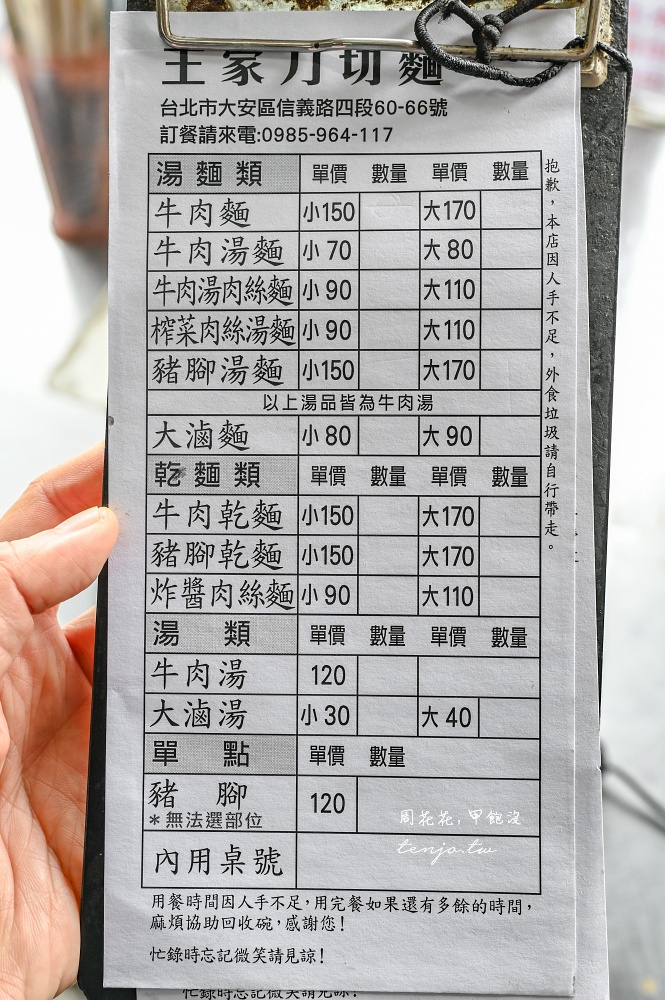 王家刀切麵
台北市大安區信義路四段60-66號
訂餐請來電:0985-964-117
湯麵類 單價 數量 單價 數量
牛肉麵 小150 大170
牛肉湯麵 小70 大80
牛肉湯肉絲麵 小90 大110
榨菜肉絲湯麵 小90 大110
豬腳湯麵 小150 大170
以上湯品皆為牛肉湯
大滷麵 小80 大90
乾麵類 單價 數量 單價 數量
牛肉乾麵 小150 大170
豬腳乾麵 小150 大170
炸醬肉絲麵 小90 大110
湯類 單價 數量 單價 數量
牛肉湯 120
大滷湯 小30 大40
單點 單價 數量
豬腳 120
*無法選部位
內用桌號
抱歉,本店因人手不足,外食垃圾請自行帶走。
周花花,甲飽沒
tenjo.tw
用餐時間因人手不足,用完餐如果還有多餘的時間,
麻煩協助回收碗,感謝您!
忙錄時忘記微笑請見諒!
忙錄時忘記微笑請見諒!